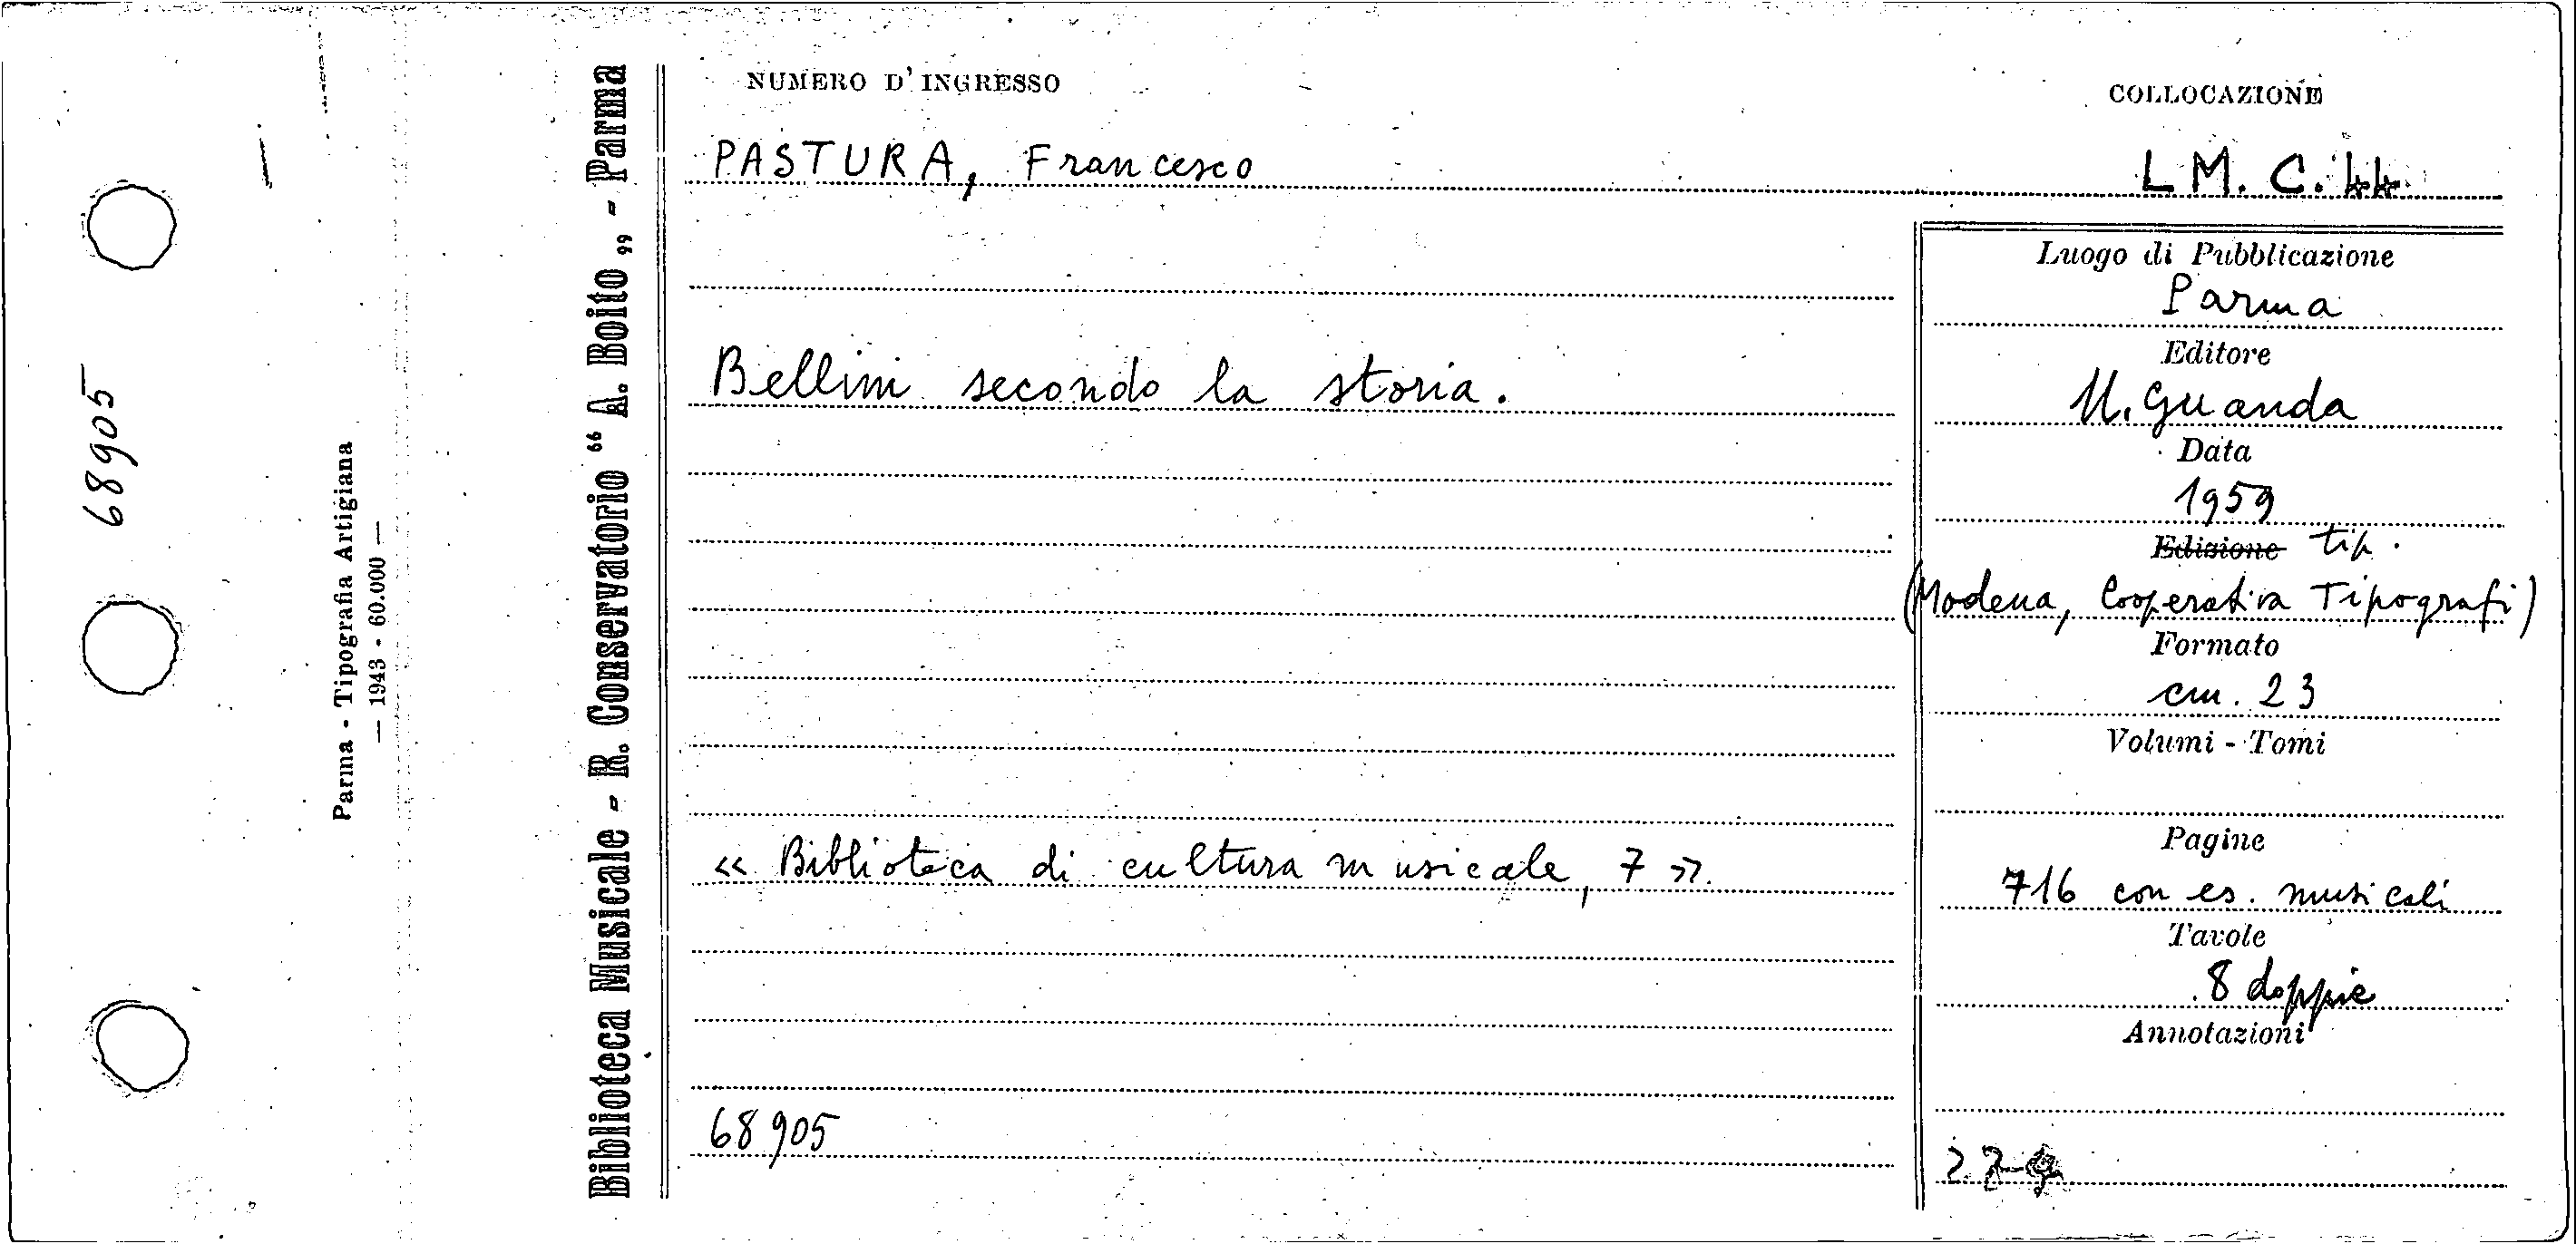 68905
Parma - Tipografia Artigiana
— 1943 - 60.000 —
Biblioteca Musicale - R. Conservatorio “ A. Boito „ - Parma
NUMERO D' INGRESSO
COLLOCAZIONE
PASTURA, Francesco
L M. C. 44
Bellini secondo la storia.
« Biblioteca di cultura musicale, 7 ».
68905
Luogo di Pubblicazione
Parma
Editore
U. Guanda
Data
1959
Edizione tip.
(Modena, Cooperativa Tipografi)
Formato
cm. 23
Volumi - Tomi
Pagine
716 con es. musicali
Tavole
8 doppie
Annotazioni